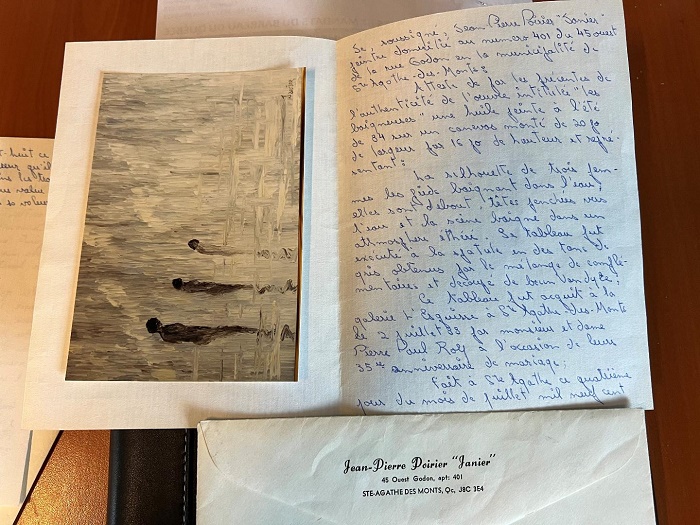 Je, soussigné, Jean Pierre Poirier "Janier"
peintre domicilié au numero 401 du 45 ouest
de la rue Godon en la municipalité de
Ste Agathe-des-Monts:
Atteste de par les présentes de
l'authenticité de l'oeuvre intitulée "Les
baigneuses" une huile peinte à l'été
de 84 sur un canevas monté de 20 po
de largeur par 16 po de hauteur et repré-
sentant:
La silhouette de trois fem-
mes les pieds baignant dans l'eau;
elles sont debout, têtes penchées vers
l'eau et la scène baigne dans un
atmosphère éthéré. Le tableau fut
exécuté à la spatule en des tons de
gris obtenus par le mélange de complé-
mentaires et de brun Vandycke;
Ce tableau fut acquit à la
galerie l'Esquisse à Ste Agathe-des-Monts
le 2 juillet par monsieur et dame
Pierre Paul Roy à l'occasion de leurs
35ième anniversaire de mariage;
Fait à Ste Agathe ce quatrième
jour du mois de juillet mil neuf cent
t-huit ce
qu'il
value
Jean-Pierre Poirier "Janier"
45 Ouest Godon, apt: 401
STE-AGATHE DES MONTS, Qc, J8C 3E4